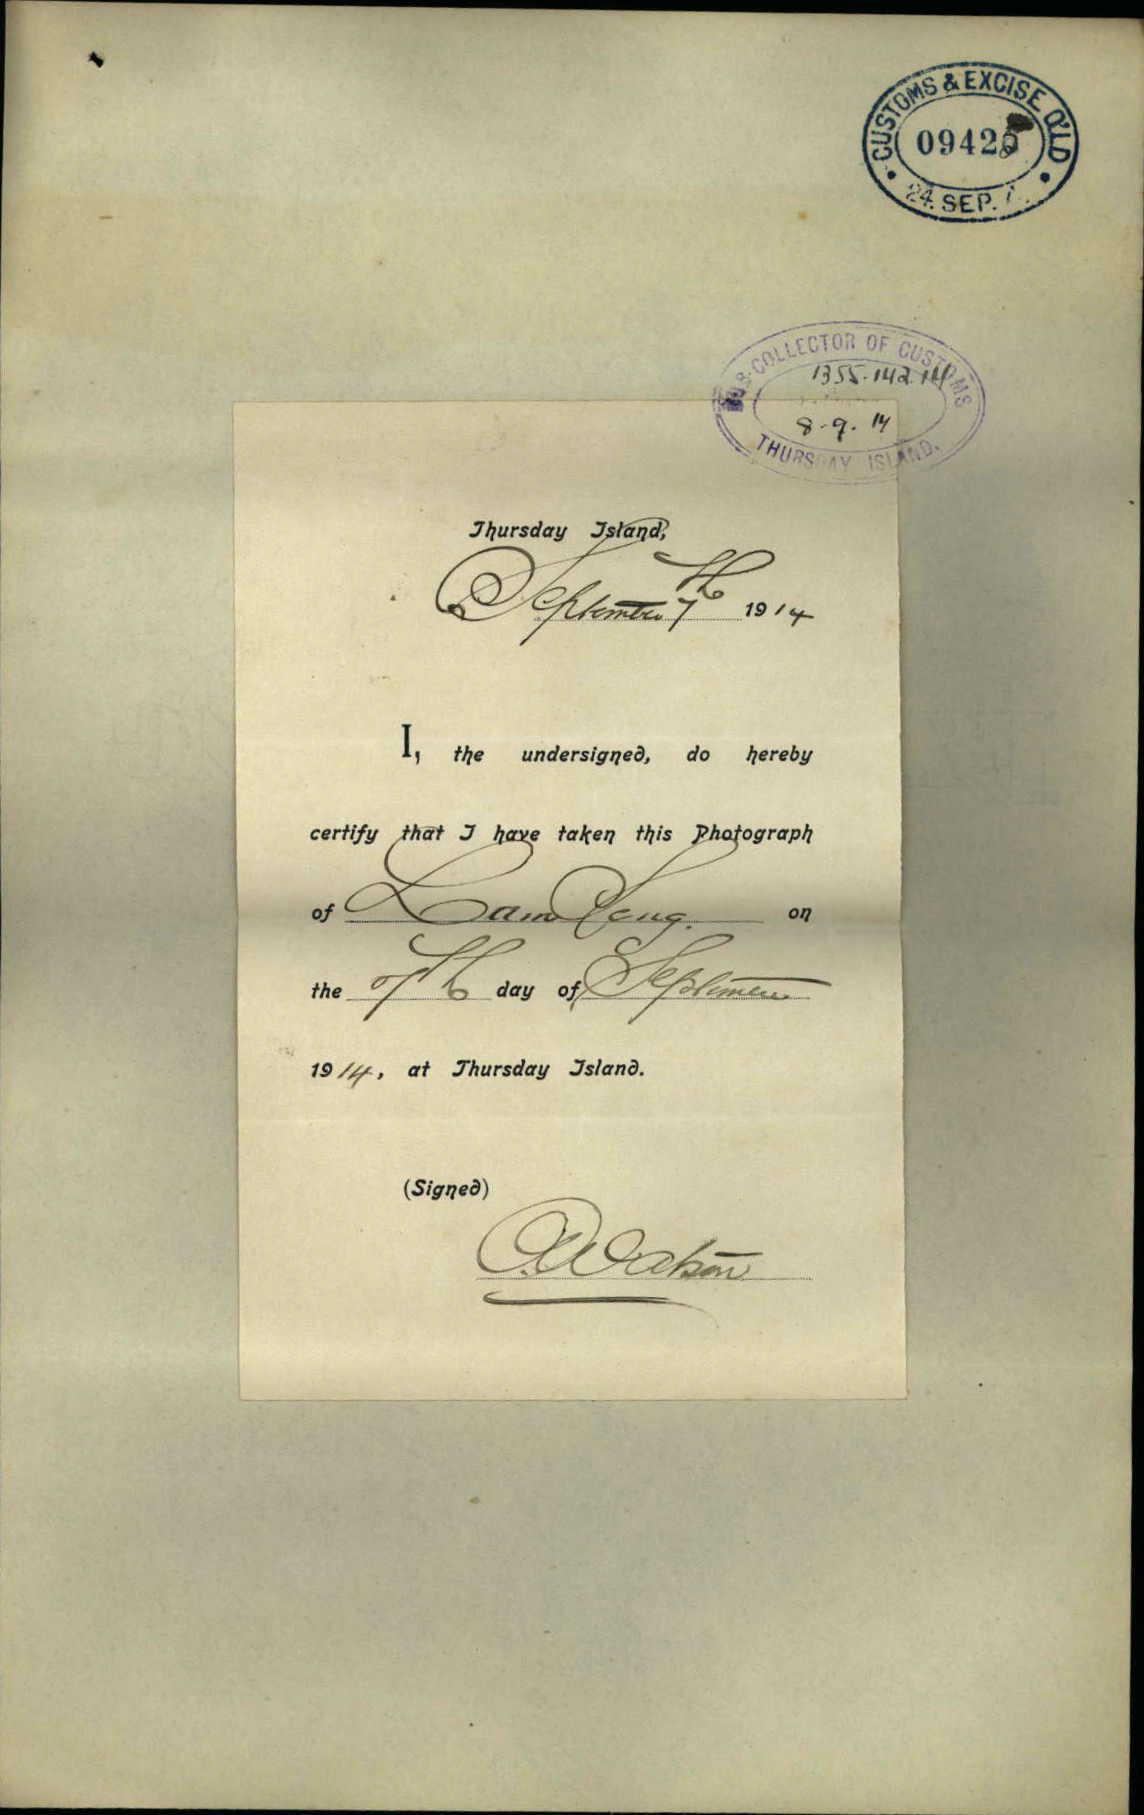 CUSTOMS & EXCISE Q'LD
0942
24. SEP.
SUB-COLLECTOR OF CUSTOMS
1355.142.14
8-9.14
THURSDAY ISLAND.
Thursday Island,
September 7th 1914
I, the undersigned, do hereby
certify that I have taken this Photograph
of Lam Sang. on
the 7th day of September
1914, at Thursday Island.
(Signed)
Watson